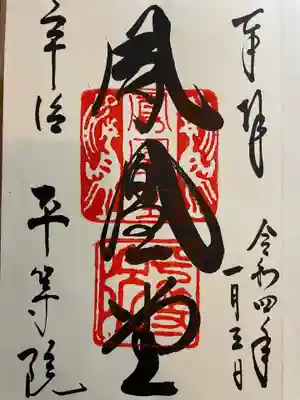 奉拝
令和四年
一月三日
鳳凰堂
宇治
平等院